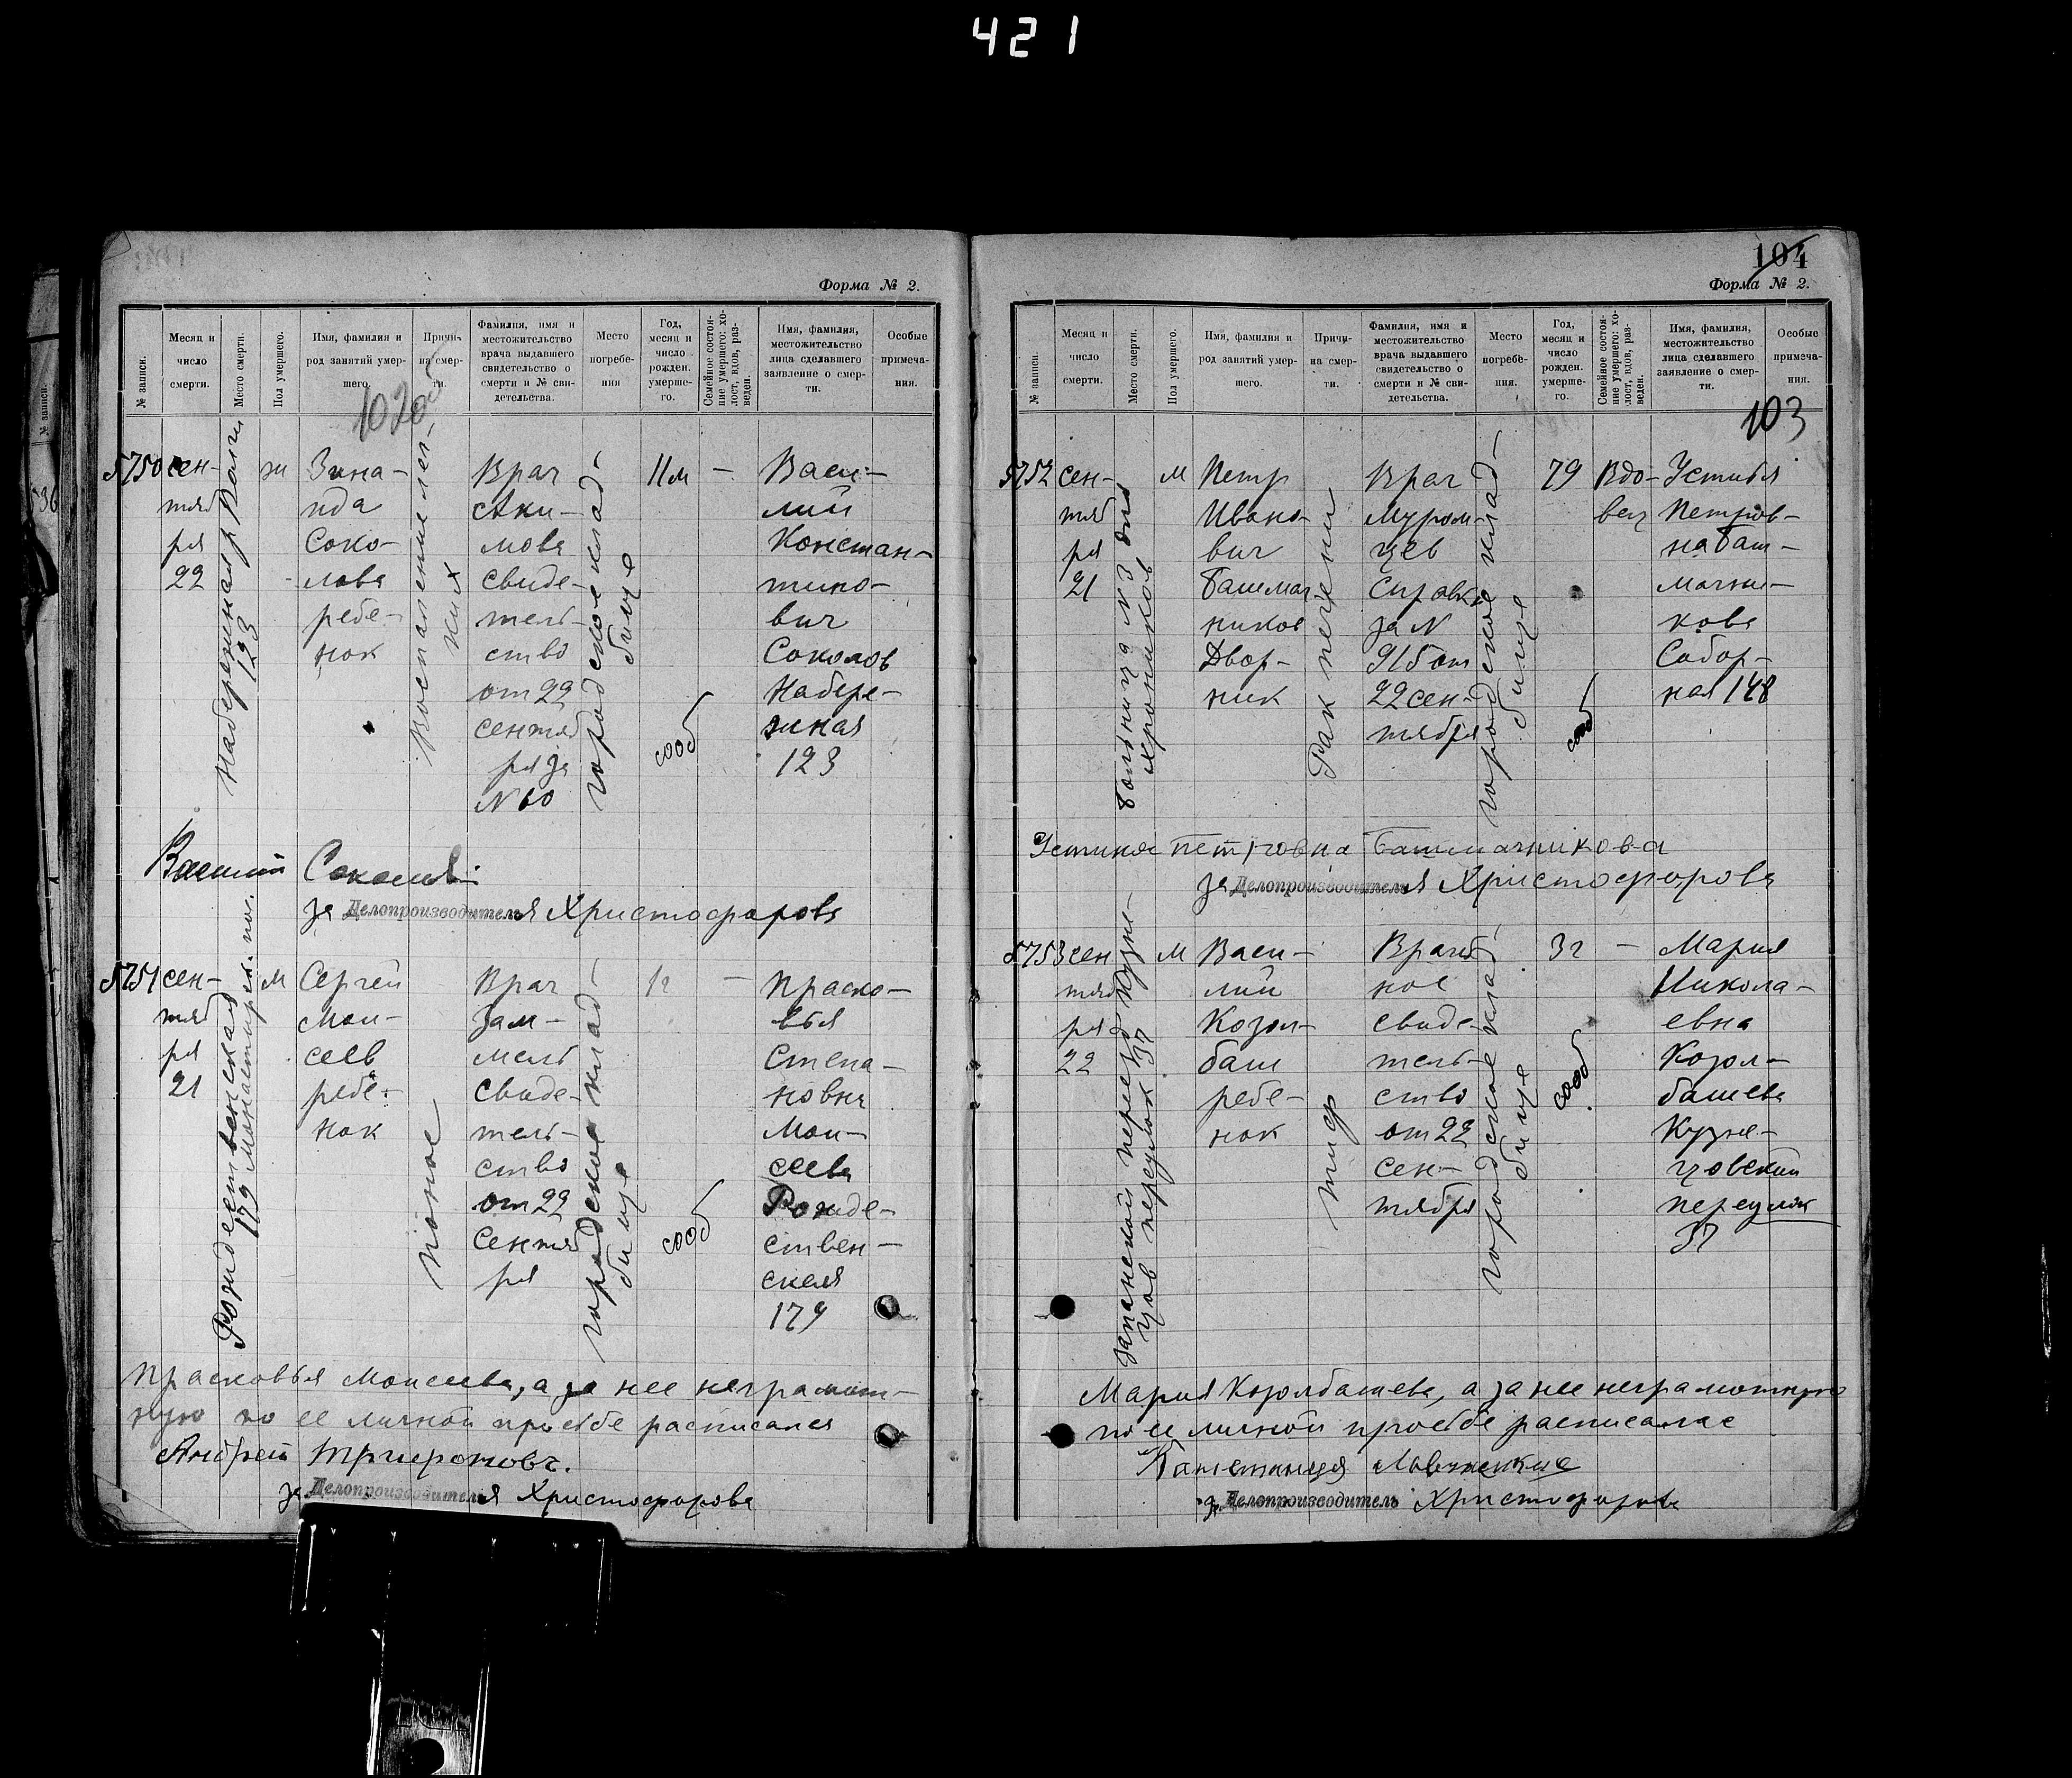 421
Форма № 2.
№ записи.
Месяц и число смерти.
Место смерти.
Пол умершего.
Имя, фамилия и род занятий умершего.
Причина смерти.
Фамилия, имя и местожительство врача выдавшего свидетельство о смерти и № свидетельства.
Место погребения
Год, месяц и число рожден. умершего.
Семейное состояние умершего: холост, вдов, разведен.
Имя, фамилия, местожительство лица сделавшего заявление о смерти.
Особые примечания.
5750
сен-
тяб
ря
22
Набережная р Волги
123
ж
Зина-
ида
Соко-
лова
ребе-
нок
Воспаление лег-
ких
Врач
Аки-
мова
свиде-
тель-
ство
от 22
сентяб
ря за
N 60
городское клад-
бище
11 м
сооб
—
Васи-
лий
Констан-
тино-
вич
Соколов
Набере-
жная
123
Василий Соколов
за Делопроизводителя Христофорова
5751
сен-
тяб
ря
21
Рождественская
179 Монастырск. пос.
м
Сергей
Мои-
сеев
ребе-
нок
понос
Врач
Зам-
мель
свиде-
тель-
ство
от 22
Сентяб
ря
городское клад-
бище
1 г
сооб
—
Праско-
вья
Степа-
новна
Мои-
сеева
Рожде-
ствен-
ская
179
Прасковья Моисеева, а за нее неграмот-
ную по ее личной просьбе расписался
Андрей Трифоновъ.
за Делопроизводителя Христофорова
104
Форма № 2.
№ записи.
Месяц и число смерти.
Место смерти.
Пол умершего.
Имя, фамилия и род занятий умершего.
Причина смерти.
Фамилия, имя и местожительство врача выдавшего свидетельство о смерти и № свидетельства.
Место погребения.
Год, месяц и число рожден. умершего.
Семейное состояние умершего: холост, вдов, разведен.
Имя, фамилия, местожительство лица сделавшего заявление о смерти.
Особые примечания.
103
5752
сен-
тяб
ря
21
Больница N 3 дом
Хроников
м
Петр
Ивано-
вич
Башмач
ников
Двор-
ник
Рак печени
Врач
Муром-
цев
Справка
за N
915 от
22 сен-
тября
городское клад-
бище
79
сооб
Вдо-
вец
Устинья
Петров-
на Баш-
мачни-
кова
Собор-
ная 148
Устиния Петровна Башмачникова
за Делопроизводителя Христофорова
5753
сен
тяб
ря
22
Запанской переезд Кузне-
цов переулок 37
м
Васи-
лий
Козол-
баш
ребе-
нок
тиф
Врачеб
ное
свиде-
тель-
ство
от 22
сен-
тября
городское клад-
бище
3 г
сооб
—
Мария
Никола-
евна
Козол-
башева
Кузне-
цовский
переулок
37
Мария Козолбашева, а за нее неграмотную
по ее личной просьбе расписалас
за Делопроизводитель Христофорова